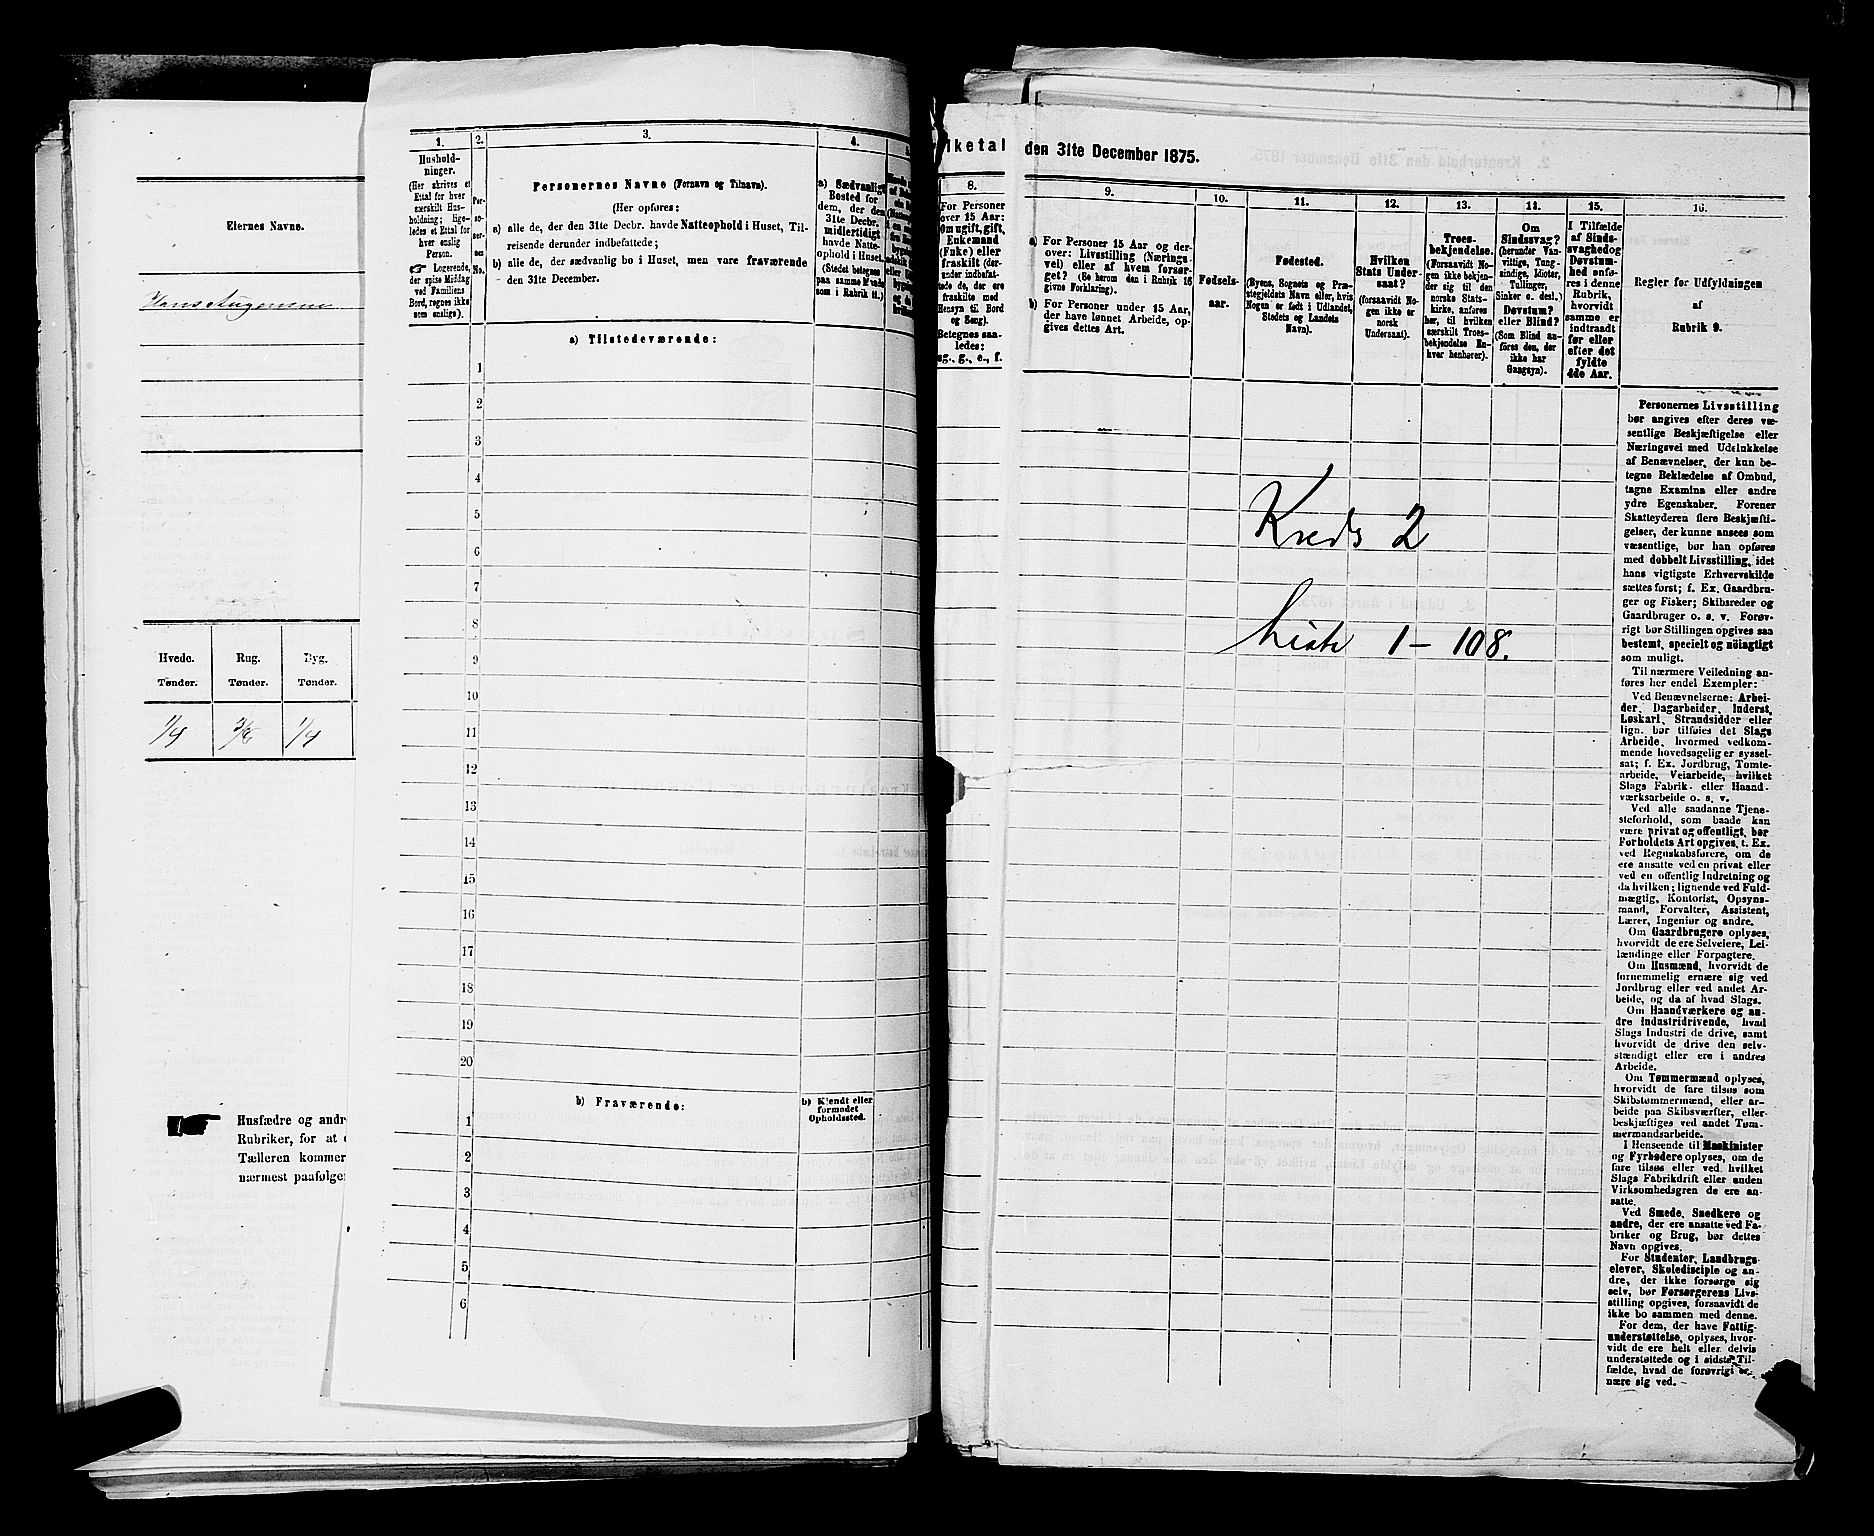 Eiernes Navne.
Hans
Hvede. Rug. Byg.
Tønder. Tønder. Tønder.
1/4 1/4
Husfædre og andr
Rubriker, for at
Tælleren kommer
nærmest paafølge
1.
Hushold-
ninger.
(Her skrives et
Ettal for hver
særskilt Hus-
holdning; lige-
ledes et Ettal for
hver enslig
Person.
☞ Logerende,
der spise Middag
ved Familiens
Bord, regnes ikke
som enslige).
2.
Per-
so-
ner-
nes
No.
3.
Personernes Navne (Fornavn og Tilnavn).
(Her opføres:
a) alle de, der den 31te Decbr. havde Natteophold i Huset, Til-
reisende derunder indbefattede;
b) alle de, der sædvanlig bo i Huset, men vare fraværende
den 31te December.
4.
a) Sædvanlig
Bosted for
dem, der den
31te Decbr.
midlertidigt
havde Natte-
ophold i Huset.
(Stedet betegnes
paa samme Maade
som i Rubrik 11.)
a) Tilstedeværende:
1
2
3
4
5
6
7
8
9
10
11
12
13
14
15
16
17
18
19
20
b) Fraværende:
b) Kjendt eller
formodet
Opholdssted.
1
2
3
4
5
6
lketal den 31te December 1875.
8.
For Personer
over 15 Aar:
Om ugift, gift,
Enkemand
(Enke) eller
fraskilt (der-
under indbefat-
tede de, der ere
fraskilte med
Hensyn til Bord
og Seng).
Betegnes saa-
ledes:
ug., g., e., f.
9.
a) For Personer 15 Aar og der-
over: Livsstilling (Nærings-
vei) eller af hvem forsør-
get? (Se herom den i Rubrik 16
givne Forklaring).
b) For Personer under 15 Aar,
der have lønnet Arbeide, op-
gives dettes Art.
10.
Fødsels-
aar.
11.
Fødested.
(Byens, Sognets og Præ-
stegjeldets Navn eller, hvis
Nogen er født i Udlandet,
Stedets og Landets
Navn).
12.
Hvilken
Stats Under-
saat?
(forsaavidt No-
gen ikke er
norsk
Undersaat).
13.
Troes-
bekjendelse.
(Forsaavidt No-
gen ikke bekjen-
der sig til den
norske Stats-
kirke, anføres
her, til hvilken
særskilt Troes-
bekjendelse En-
hver henhører).
14.
Om
Sindssvag?
(herunder Van-
vittige, Tung-
sindige, Idioter,
Tullinger,
Sinker o. desl.)
Døvstum?
eller Blind?
(Som Blind an-
føres den, der
ikke har
Gangsyn).
15.
I Tilfælde
af Sinds-
svaghed og
Døvstum-
hed anfø-
res i denne
Rubrik,
hvorvidt
samme er
indtraadt
før eller
efter det
fyldte
4de Aar.
16.
Regler for Udfyldningen
af
Rubrik 9.
Kreds 2
Liste 1 – 108.
Personernes Livsstilling
bør angives efter deres væ-
sentlige Beskjæftigelse eller
Næringsvei med Udelukkelse
af Benævnelser, der kun be-
tegne Beklædelse af Ombud,
tagne Examina eller andre
ydre Egenskaber. Forener
Skatteyderen flere Beskjæfti-
gelser, der kunne ansees som
væsentlige, bør han opføres
med dobbelt Livsstilling, idet
hans vigtigste Erhvervskilde
sættes først; f. Ex. Gaardbru-
ger og Fisker; Skibsreder og
Gaardbruger o. s. v. Forøv-
rigt bør Stillingen opgives saa
bestemt, specielt og nøiagtigt
som muligt.
Til nærmere Veiledning an-
føres her endel Exempler:
Ved Benævnelserne: Arbei-
der, Dagarbeider, Inderst,
Løskarl, Strandsidder eller
lign. bør tilføies det Slags
Arbeide, hvormed vedkom-
mende hovedsagelig er syssel-
sat; f. Ex. Jordbrug, Tomte-
arbeide, Veiarbeide, hvilket
Slags Fabrik- eller Haand-
værksarbeide o. s. v.
Ved alle saadanne Tjene-
steforhold, som baade kan
være privat og offentligt, bør
Forholdets Art opgives, t. Ex.
ved Regnskabsførere, om de
ere ansatte ved en privat eller
ved en offentlig Indretning og
da hvilken; lignende ved Fuld-
mægtig, Kontorist, Opsyns-
mand, Forvalter, Assistent,
Lærer, Ingeniør og andre.
Om Gaardbrugere oplyses,
hvorvidt de ere Selveiere, Lei-
lændinge eller Forpagtere.
Om Husmænd, hvorvidt de
fornemmelig ernære sig ved
Jordbrug eller ved andet Ar-
beide, og da af hvad Slags.
Om Haandværkere og an-
dre Industridrivende, hvad
Slags Industri de drive, samt
hvorvidt de drive den selv-
stændigt eller ere i andres
Arbeide.
Om Tømmermænd oplyses,
hvorvidt de fare tilsøs som
Skibstømmermænd, eller ar-
beide paa Skibsværfter, eller
beskjæftiges ved andet Tøm-
mermandsarbeide.
I Henseende til Maskinister
og Fyrbødere oplyses, om de
fare tilsøs eller ved hvilket
Slags Fabrikdrift eller anden
Virksomhedsgren de ere an-
satte.
Ved Smede, Snedkere og
andre, der ere ansatte ved Fa-
briker og Brug, bør dettes
Navn opgives.
For Studenter, Landbrugs-
elever, Skoledisciple og an-
dre, der ikke forsørge sig
selv, bør Forsørgerens Livs-
stilling opgives, forsaavidt de
ikke bo sammen med denne.
For dem, der have Fattig-
understøttelse, oplyses, hvor-
vidt de ere helt eller delvis
understøttede og i sidste Til-
fælde, hvad de forøvrigt er-
nære sig ved.